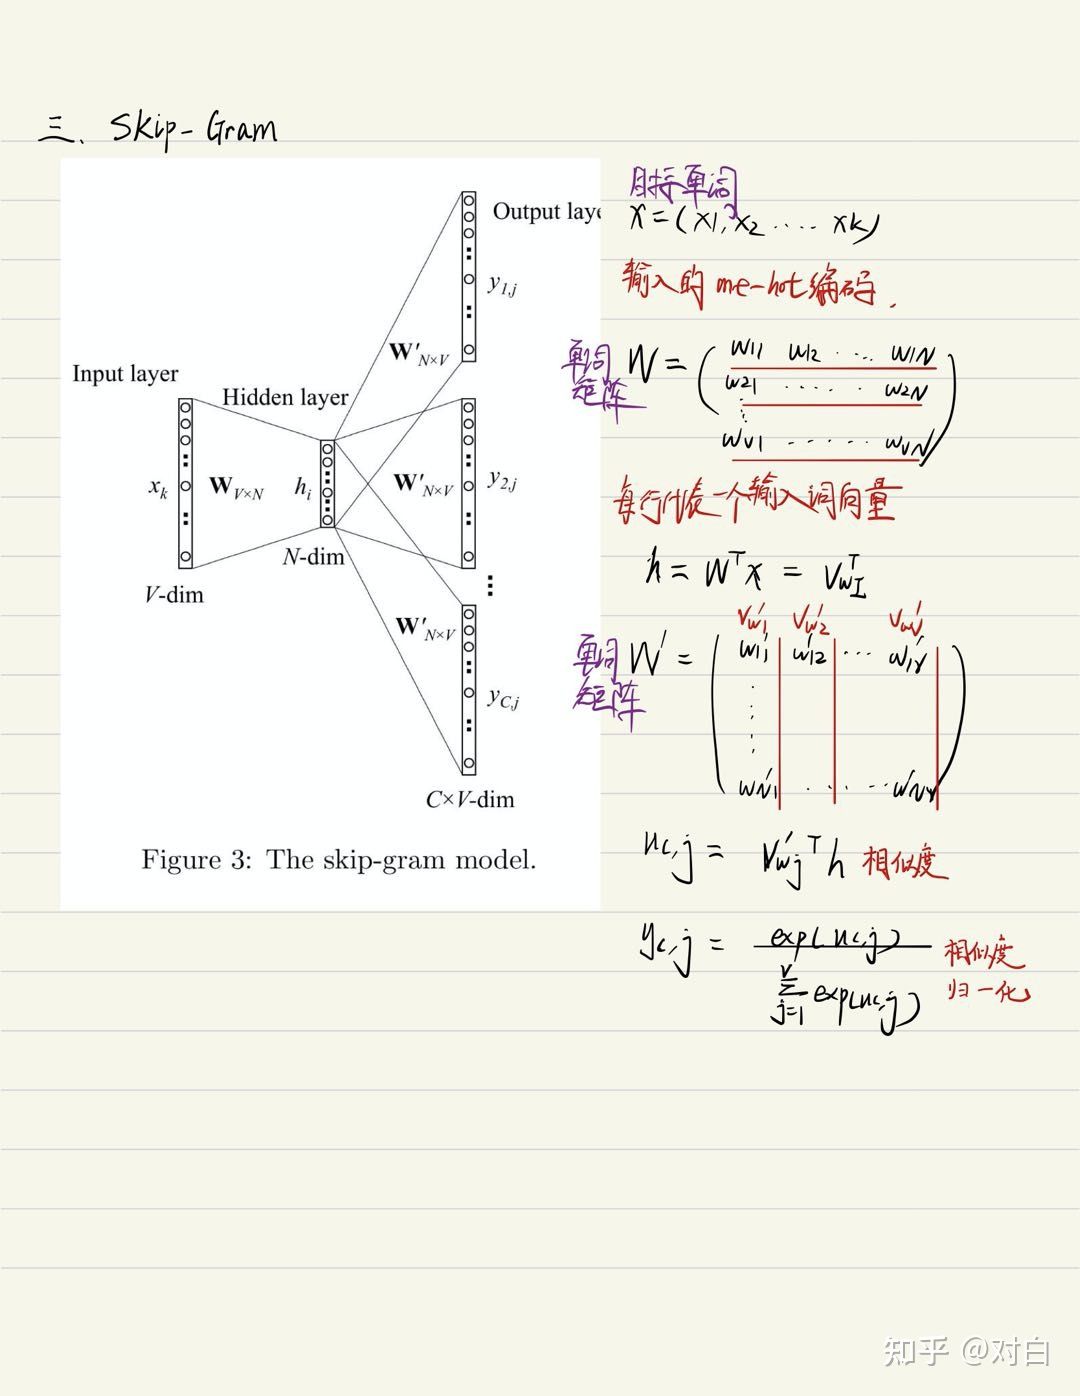 三、Skip-Gram
Output laye
y1,j
W'N×V
Input layer
Hidden layer
xk
WV×N
hi
W'N×V
y2,j
N-dim
V-dim
W'N×V
yC,j
C×V-dim
Figure 3: The skip-gram model.
单词
x=(x1, x2 ····· xk)
输入的 one-hot编码.
单词
矩阵
W = ( w11 w12 ··· w1N
w21 ····· w2N
⋮
wv1 ······ wvN )
每行代表一个输入词向量
h = Wᵀx = VwIᵀ
V'w1 V'w2 V'wv
单词
矩阵
W' = ( w'11 w'12 ··· w'1v
⋮
w'N1 ····· w'Nv )
uc,j = V'wjᵀh 相似度
yc,j = exp(uc,j)
Σ j=1 V exp(uc,j)
相似度
归一化
知乎 @对白